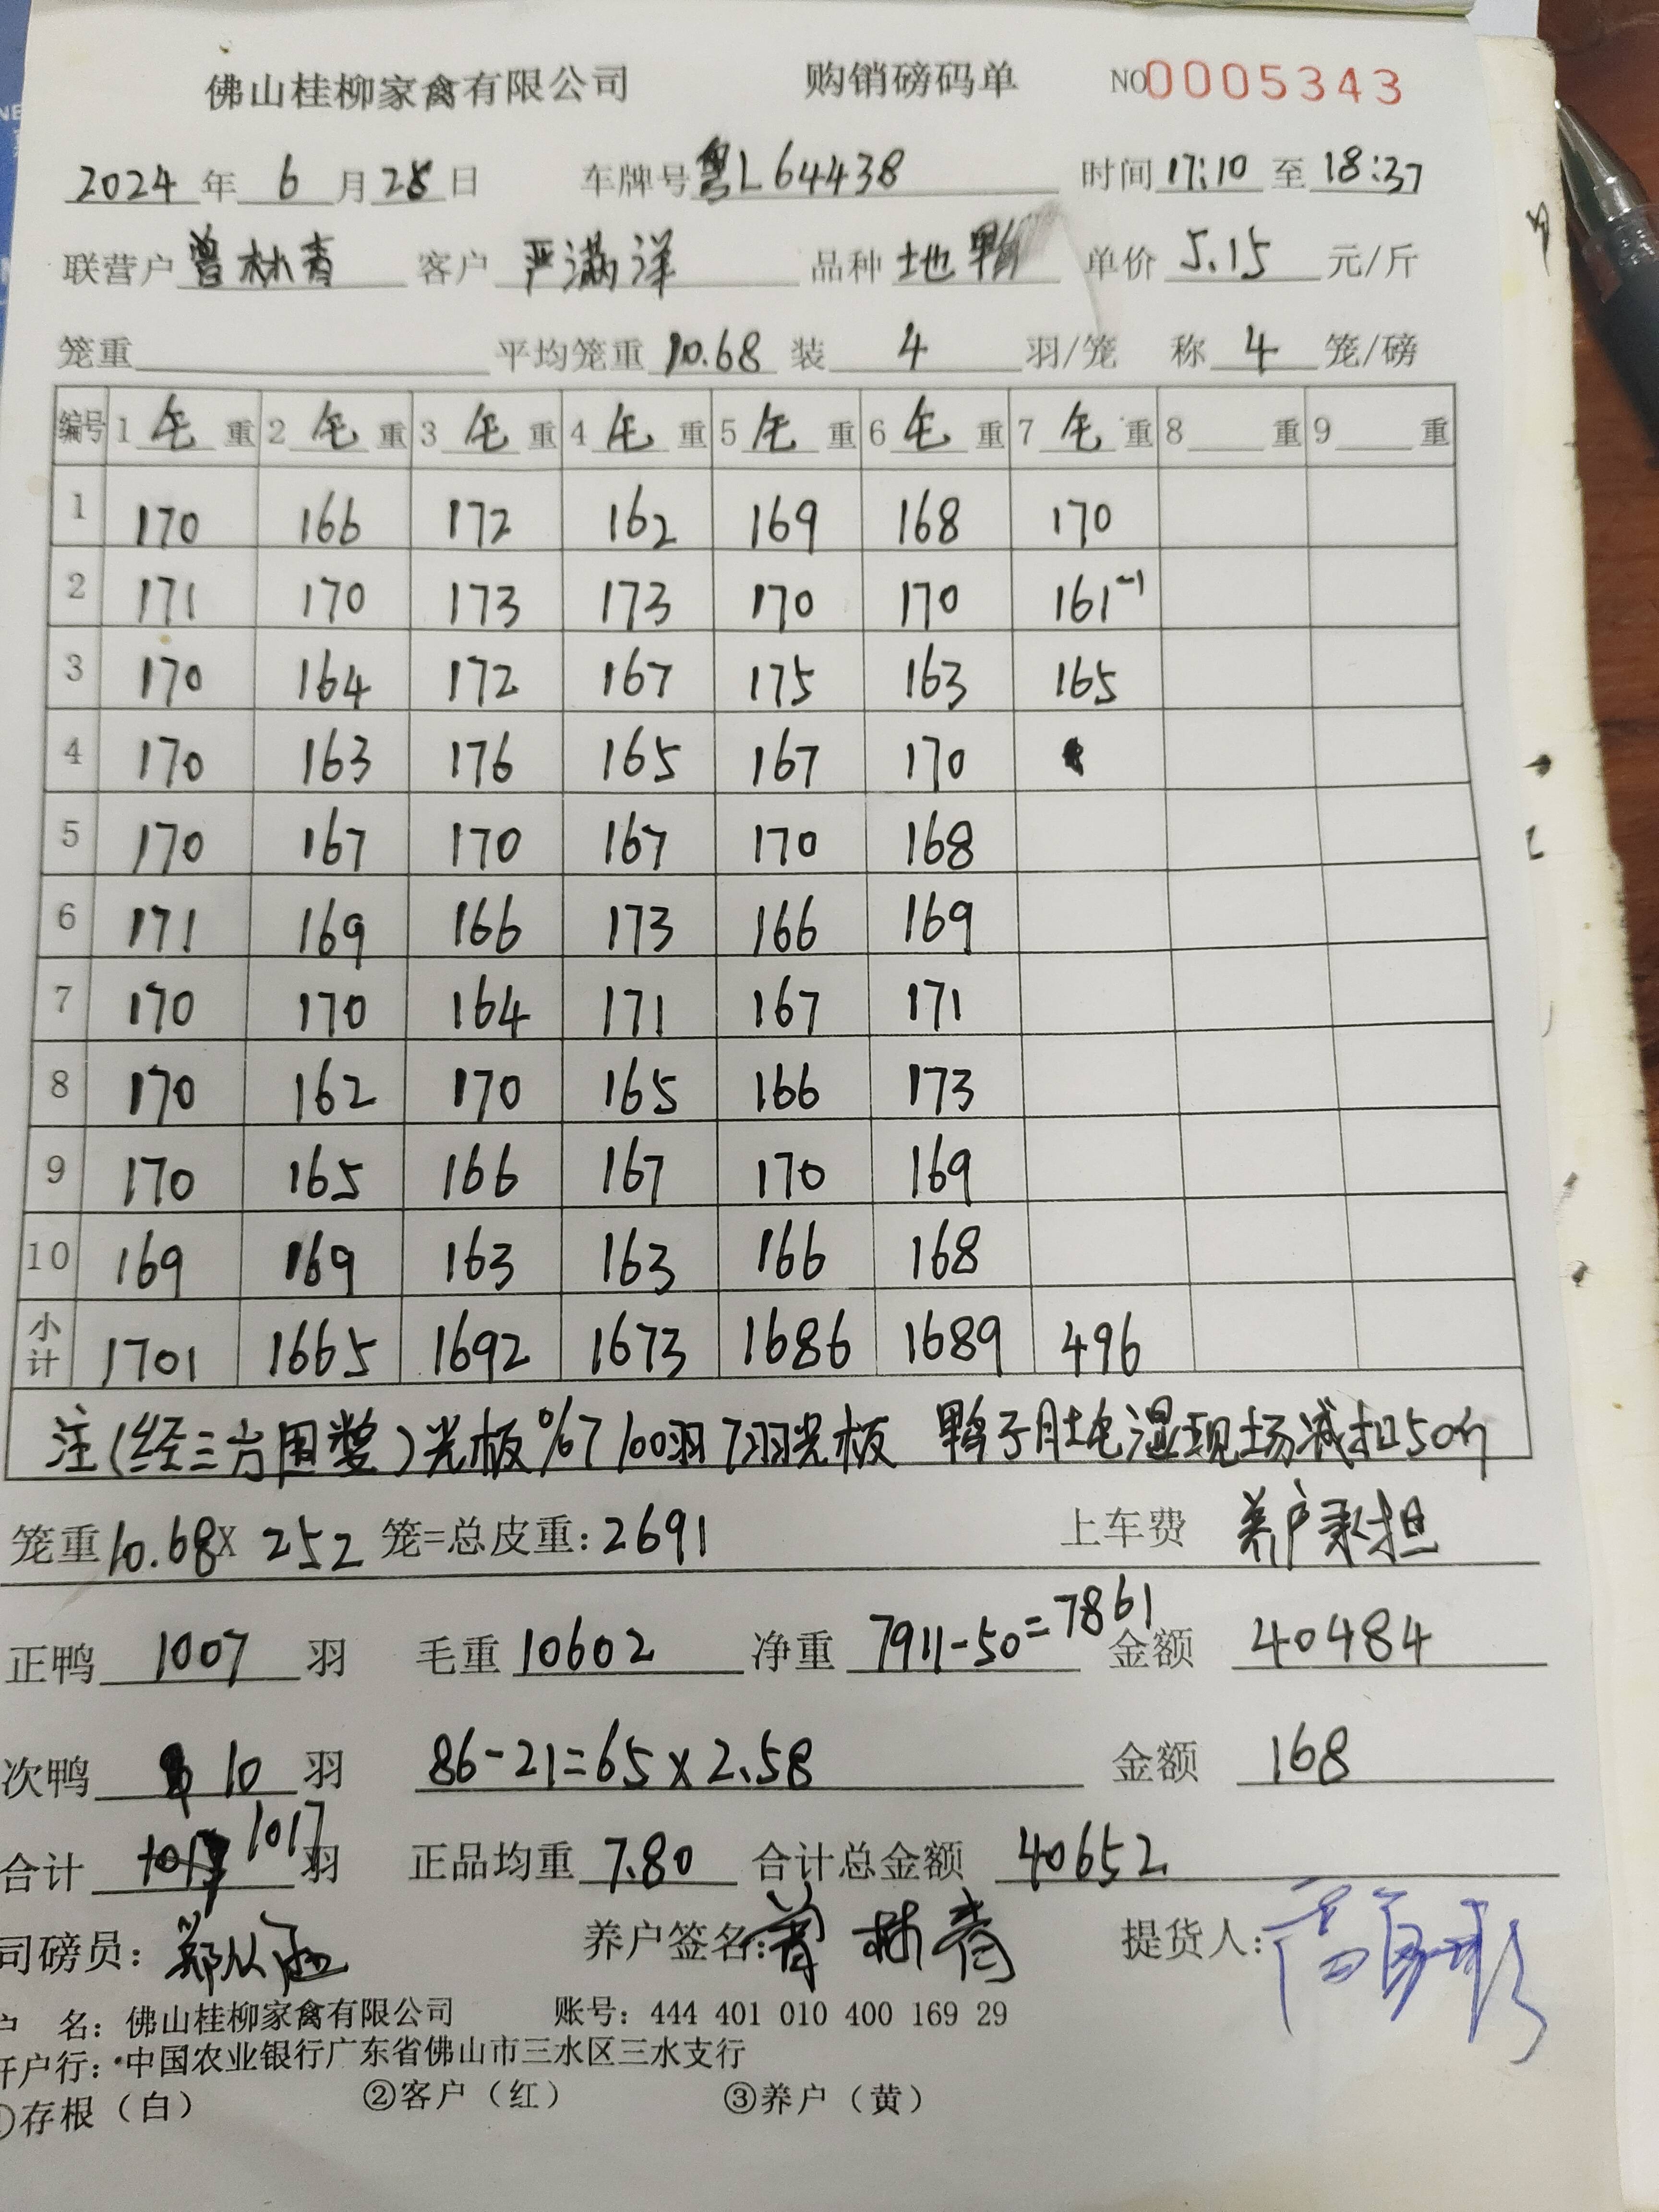 佛山桂柳家禽有限公司 购销磅码单 NO0005343
2024年6月28日 车牌号粤L64438 时间17:10至18:37
联营户曾林青 客户严满洋 品种土鸭 单价5.15元/斤
笼重 平均笼重10.68装4羽/笼 称4笼/磅
编号 1毛重 2毛重 3毛重 4毛重 5毛重 6毛重 7毛重 8重 9重
1 170 166 172 162 169 168 170
2 171 170 173 173 170 170 161-1
3 170 164 172 167 175 163 165
4 170 163 176 165 167 170
5 170 167 170 167 170 168
6 171 169 166 173 166 169
7 170 170 164 171 167 171
8 170 162 170 165 166 173
9 170 165 166 167 170 169
10 169 169 163 163 166 168
小计 1701 1665 1692 1673 1686 1689 496
注(经三方同意)光板%7 100羽7羽光板 鸭子肚湿现场减扣50斤
笼重10.68X252笼=总皮重:2691 上车费 养户承担
正鸭1007羽 毛重10602 净重7911-50=7861 金额40484
次鸭10羽 86-21=65×2.58 金额168
合计1017羽 正品均重7.80 合计总金额40652
司磅员: 养户签名:曾林青 提货人:
户 名: 佛山桂柳家禽有限公司 账号: 444 401 010 400 169 29
开户行: 中国农业银行广东省佛山市三水区三水支行
①存根(白) ②客户(红) ③养户(黄)